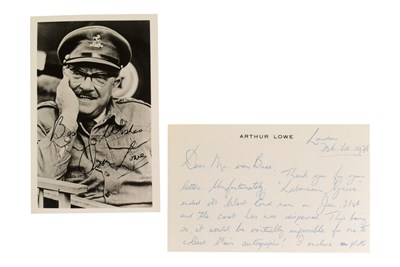 Best Wishes
Arthur Lowe
ARTHUR LOWE
London
Dear Mr van
Thank you for your
letter. Unfortunately "
ended its West End run on Jan 31st
and the cast has dispersed. This being
so, it would be virtually impossible for me to
collect their autographs. I enclose